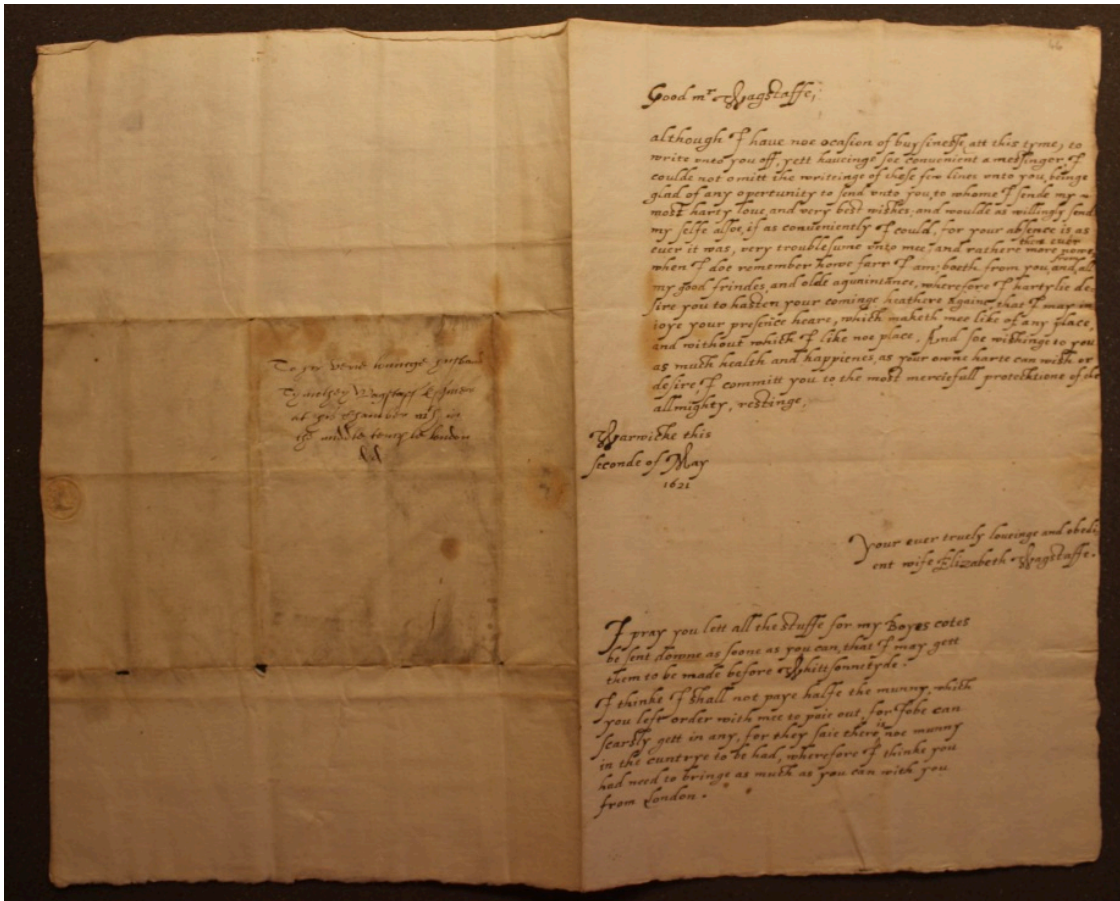 To my verie loveinge husband
Tymothey Wagstaff Esquier
at his chamber nish in
the middle temple london
dd
46
Good mr Wagstaffe,
although I have noe ocasion of buysinesse, att this tyme, to
write unto you off, yett haveinge soe convenient a messinger, I
coulde not omitt the writeinge of these few lines unto you, beinge
glad of any opertunity to send unto you, to whome I sende my
most harty love, and very best wishes, and woulde as willingly send
my selfe alsoe, if as conveniently I could, for your absence is as
ever it was, very troublesume unto mee, and rathere more nowe
then ever
when I doe remember howe farr I am, boeth from you, and all
from
my good frindes, and olde aquaintance, wherefore I hartylie de-
sire you to hasten your cominge heathere againe, that I may in
joye your presence heare, which maketh mee like of any place,
and without which I like noe place. And soe wishinge to you
as much health and happienes, as your owne harte can wish or
desire, I committ you to the most merciefull protecktione of the
allmighty, restinge,
Warwicke this
seconde of May
1621
Your ever truely loveinge and obedi-
ent wife Elizabeth Wagstaffe.
I pray you lett all the stuffe for my Boyes cotes
be sent downe as soone as you can, that I may gett
them to be made before Whittsonnetyde.
I thinke I shall not paye halfe the munny, which
you left order with mee to paie out, for Jobe can
scarsly gett in any, for they saie there is noe munny
in the cuntrye to be had, wherefore I thinke you
had need to bringe as much as you can with you
from London.